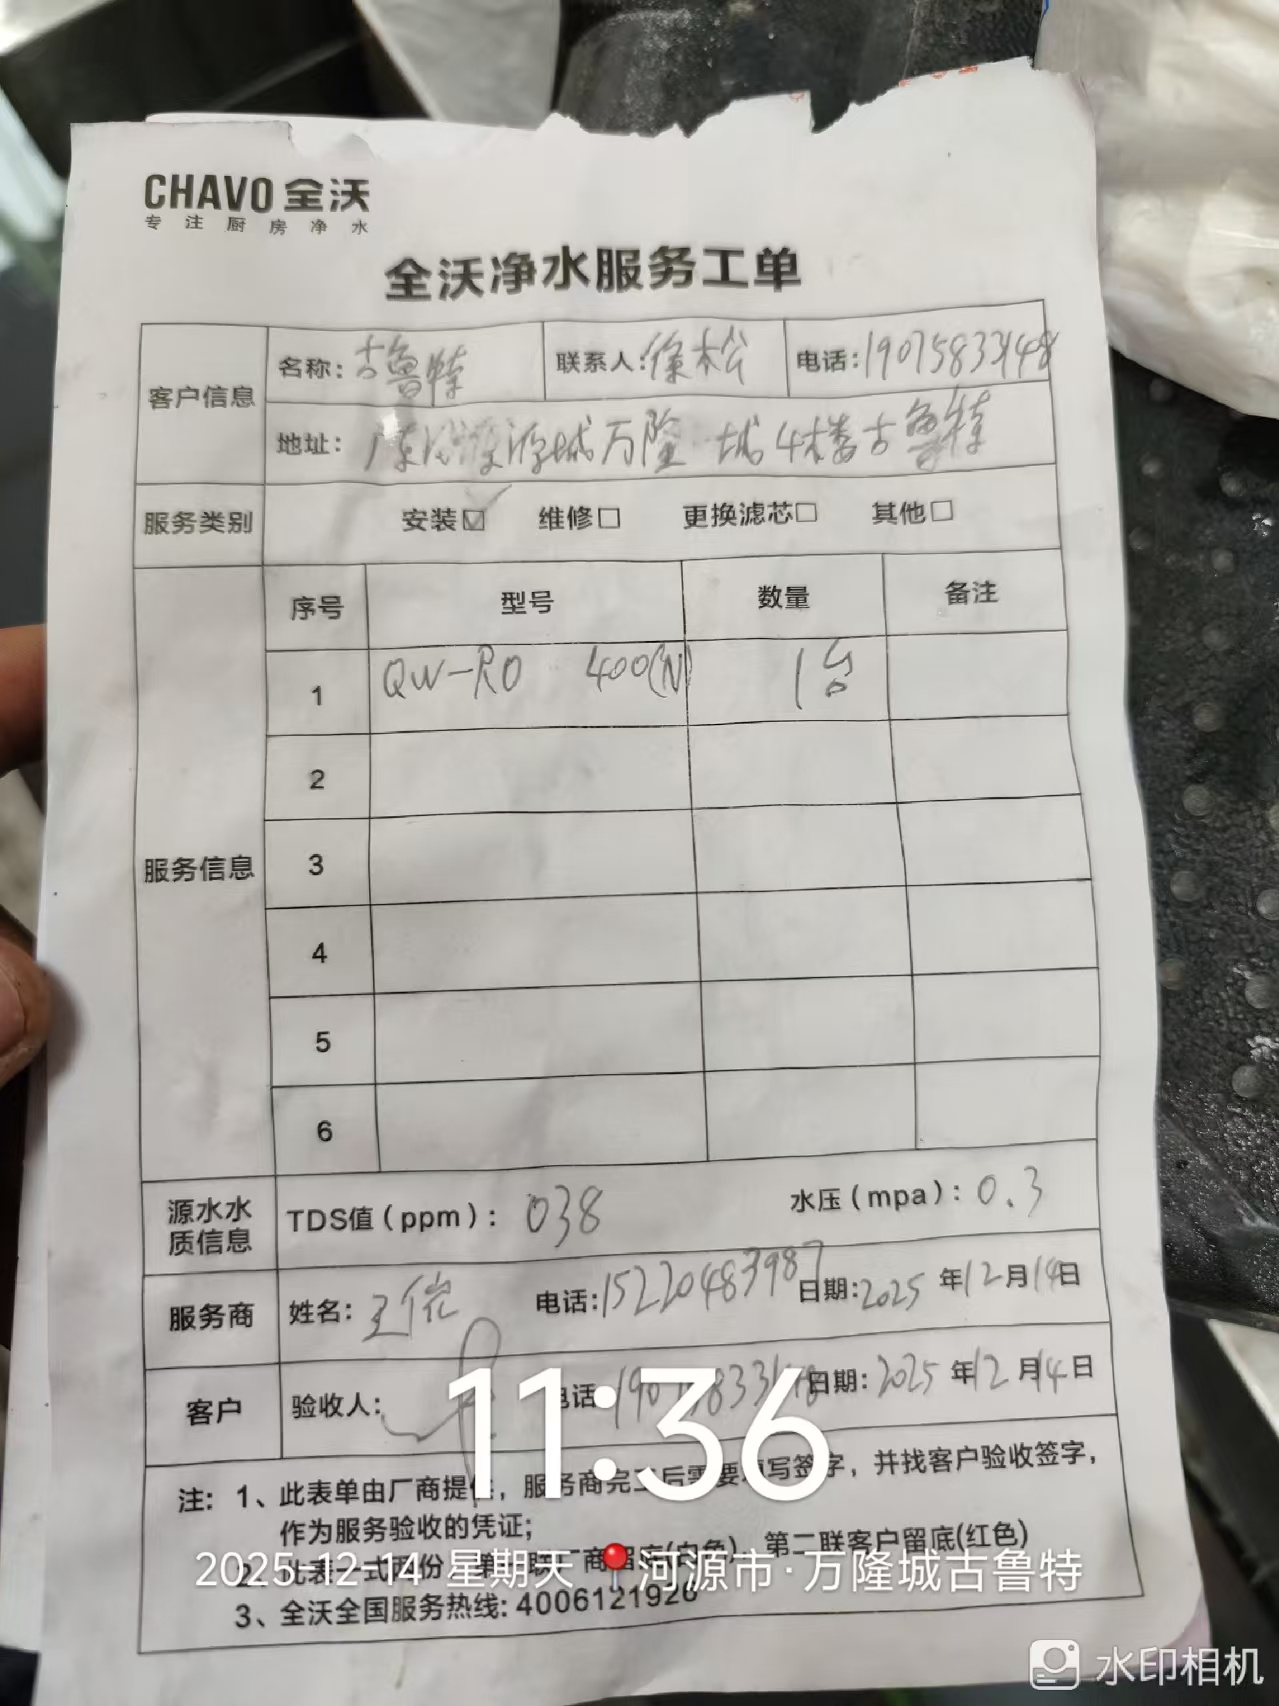 CHAVO 全沃
专注厨房净水
全沃净水服务工单
客户信息 名称: 古鲁特 联系人: 徐松 电话: 19075833148
地址: 广东河源源城万隆城4楼古鲁特
服务类别 安装☑ 维修□ 更换滤芯□ 其他□
服务信息 序号 型号 数量 备注
1 QW-RO 400(N) 1台
2
3
4
5
6
源水水质信息 TDS值(ppm): 038 水压(mpa): 0.3
服务商 姓名: 王 电话: 15220483987 日期: 2025年12月14日
客户 验收人: 电话: 日期: 2025年12月14日
11:36
注: 1、此表单由厂商提供，服务商完工后需要填写签字，并找客户验收签字，
作为服务验收的凭证;
2、此表一式两份，第一联厂商留底(白色)，第二联客户留底(红色)
2025.12.14 星期天 河源市·万隆城古鲁特
3、全沃全国服务热线: 4006121926
水印相机